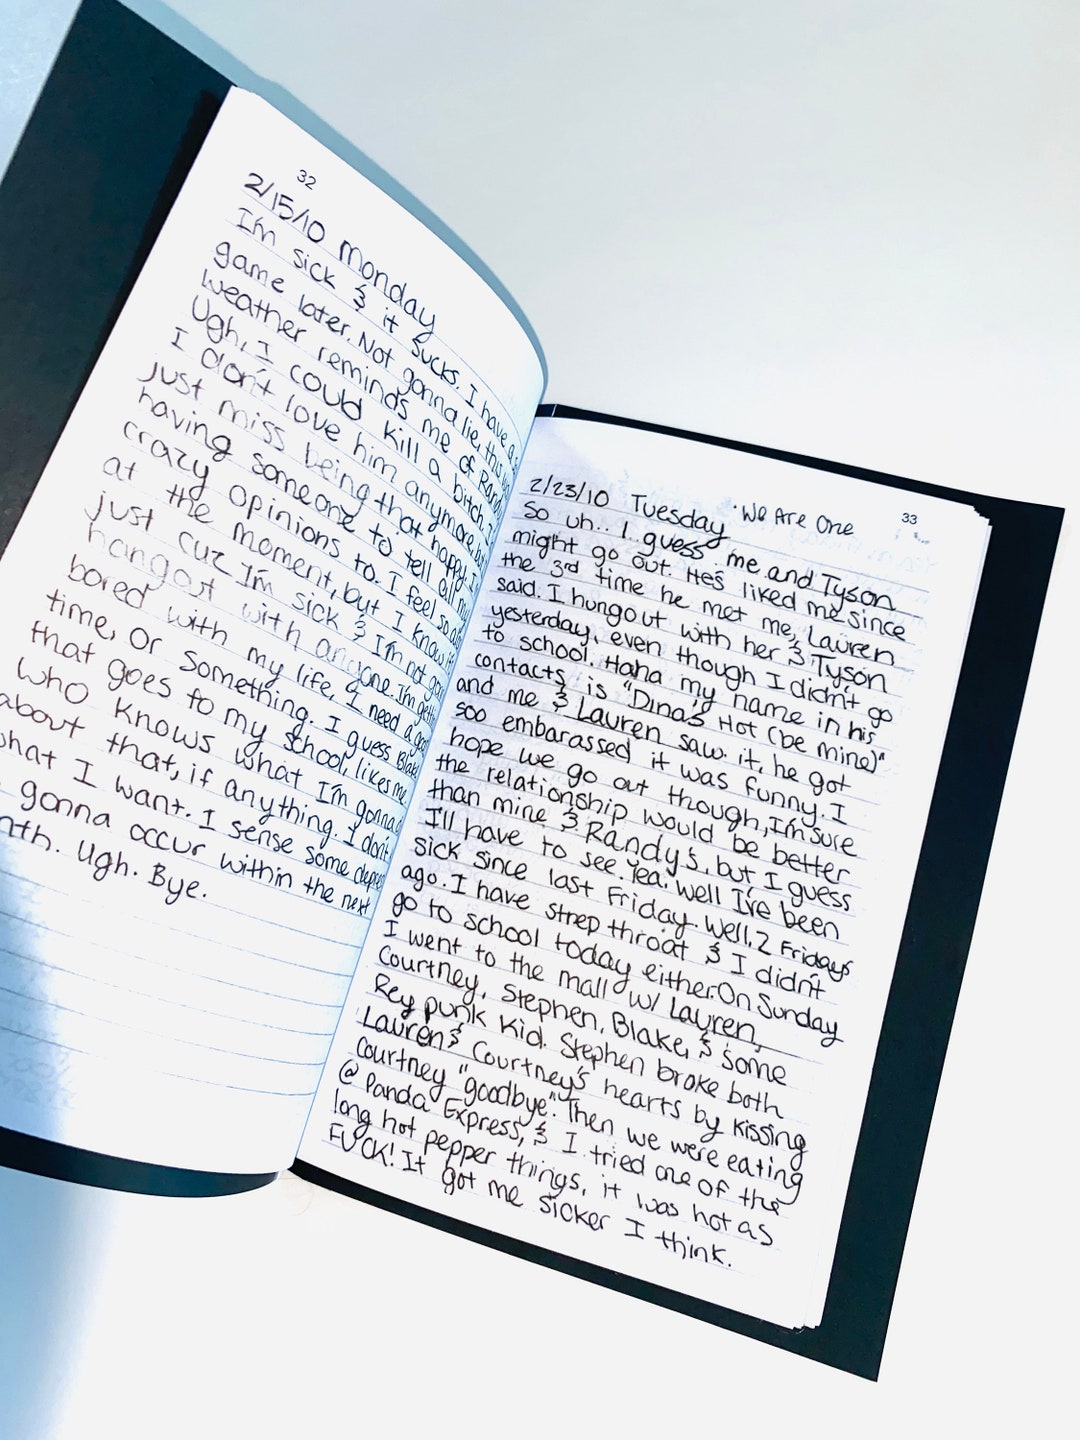 32
2/15/10 Monday
I'm sick & it sucks. I have a
game later. Not gonna lie, this
weather reminds me of
Ugh, I could kill a bitch.
I don't love him anymore,
just miss being that happy,
having someone to tell all my
crazy opinions to. I feel so
at the moment, but I know it
just cuz I'm sick & I'm not
hangout with anyone. I'm
bored with my life, I need a
time, or something. I guess
that goes to my school, likes me,
who knows what I'm
about that, if anything. I don't
what I want. I sense some
gonna occur within the next
Ugh. Bye.
33
2/23/10 Tuesday · We Are One
So uh.. I guess me and Tyson
might go out. He's liked me since
the 3rd time he met me, Lauren
said. I hungout with her & Tyson
yesterday, even though I didn't go
to school. Haha my name in his
contacts is "Dina's Hot (be mine)"
and me & Lauren saw it, he got
soo embarassed it was funny. I
hope we go out though, I'm sure
the relationship would be better
than mine & Randy's, but I guess
I'll have to see. Yea. well I've been
sick since last Friday. Well, 2 Fridays
ago. I have strep throat & I didn't
go to school today either. On Sunday
I went to the mall w/ Lauren,
Courtney, Stephen, Blake, & some
Rey punk kid. Stephen broke both
Lauren & Courtney's hearts by kissing
Courtney "goodbye". Then we were eating
@ Panda Express, & I tried one of the
long hot pepper things, it was hot as
FUCK! It got me sicker I think.